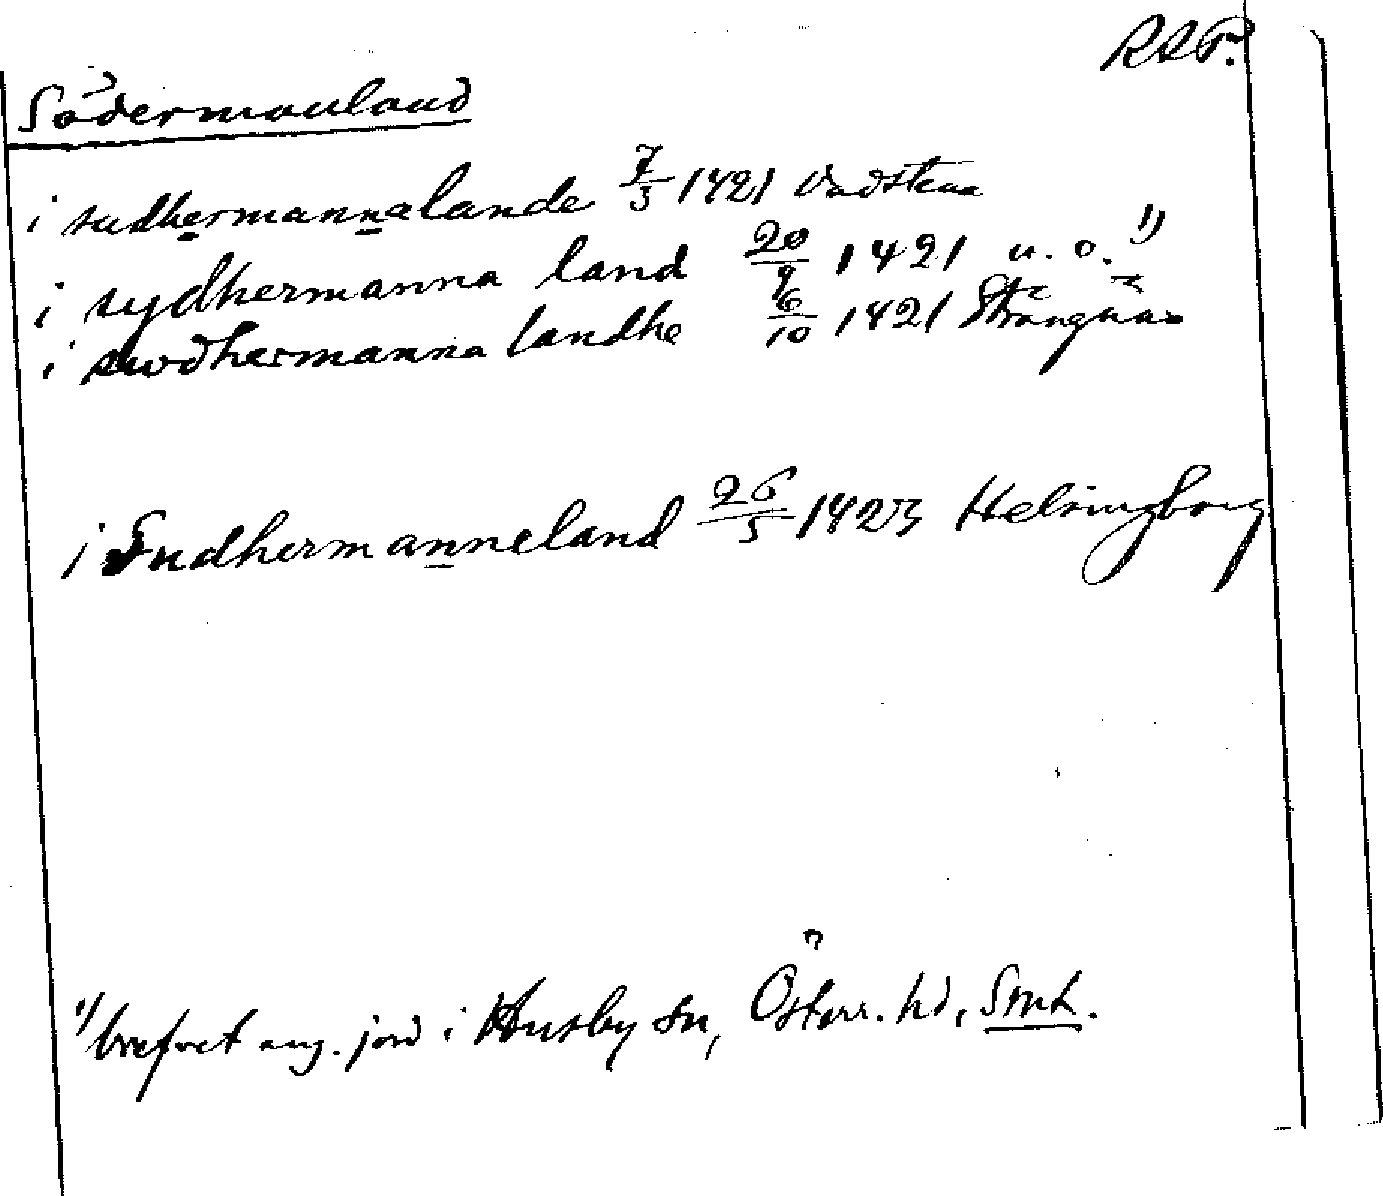 RAP.
Södermanland
i sudhermannalande 7/5 1421 Vadstena
i sydhermanna land 20/9 1421 u. o. 1)
i swdhermanna landhe 6/10 1421 Strängnäs
i Sudhermanneland 26/5 1423 Helsingborg
1) brefvet ang. jord i Husby sn, Österr. hd, Smk.